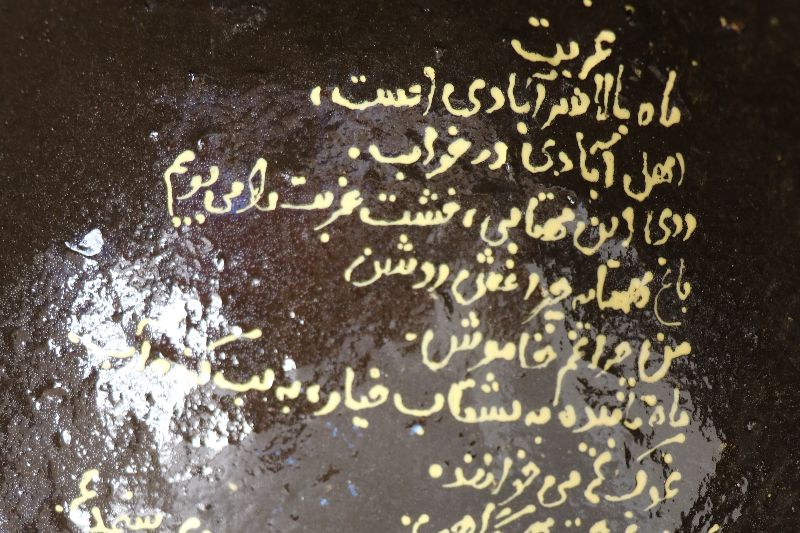 غربت
ماه بالای سر آبادی است،
اهل آبادی در خواب.
روی این مهتابی، خشت غربت را می بویم
باغ همسایه چراغش روشن
من چراغم خاموش.
ماه تابیده به بشقاب خیار، به لب کوزه آب.
غوک ها می خوانند.